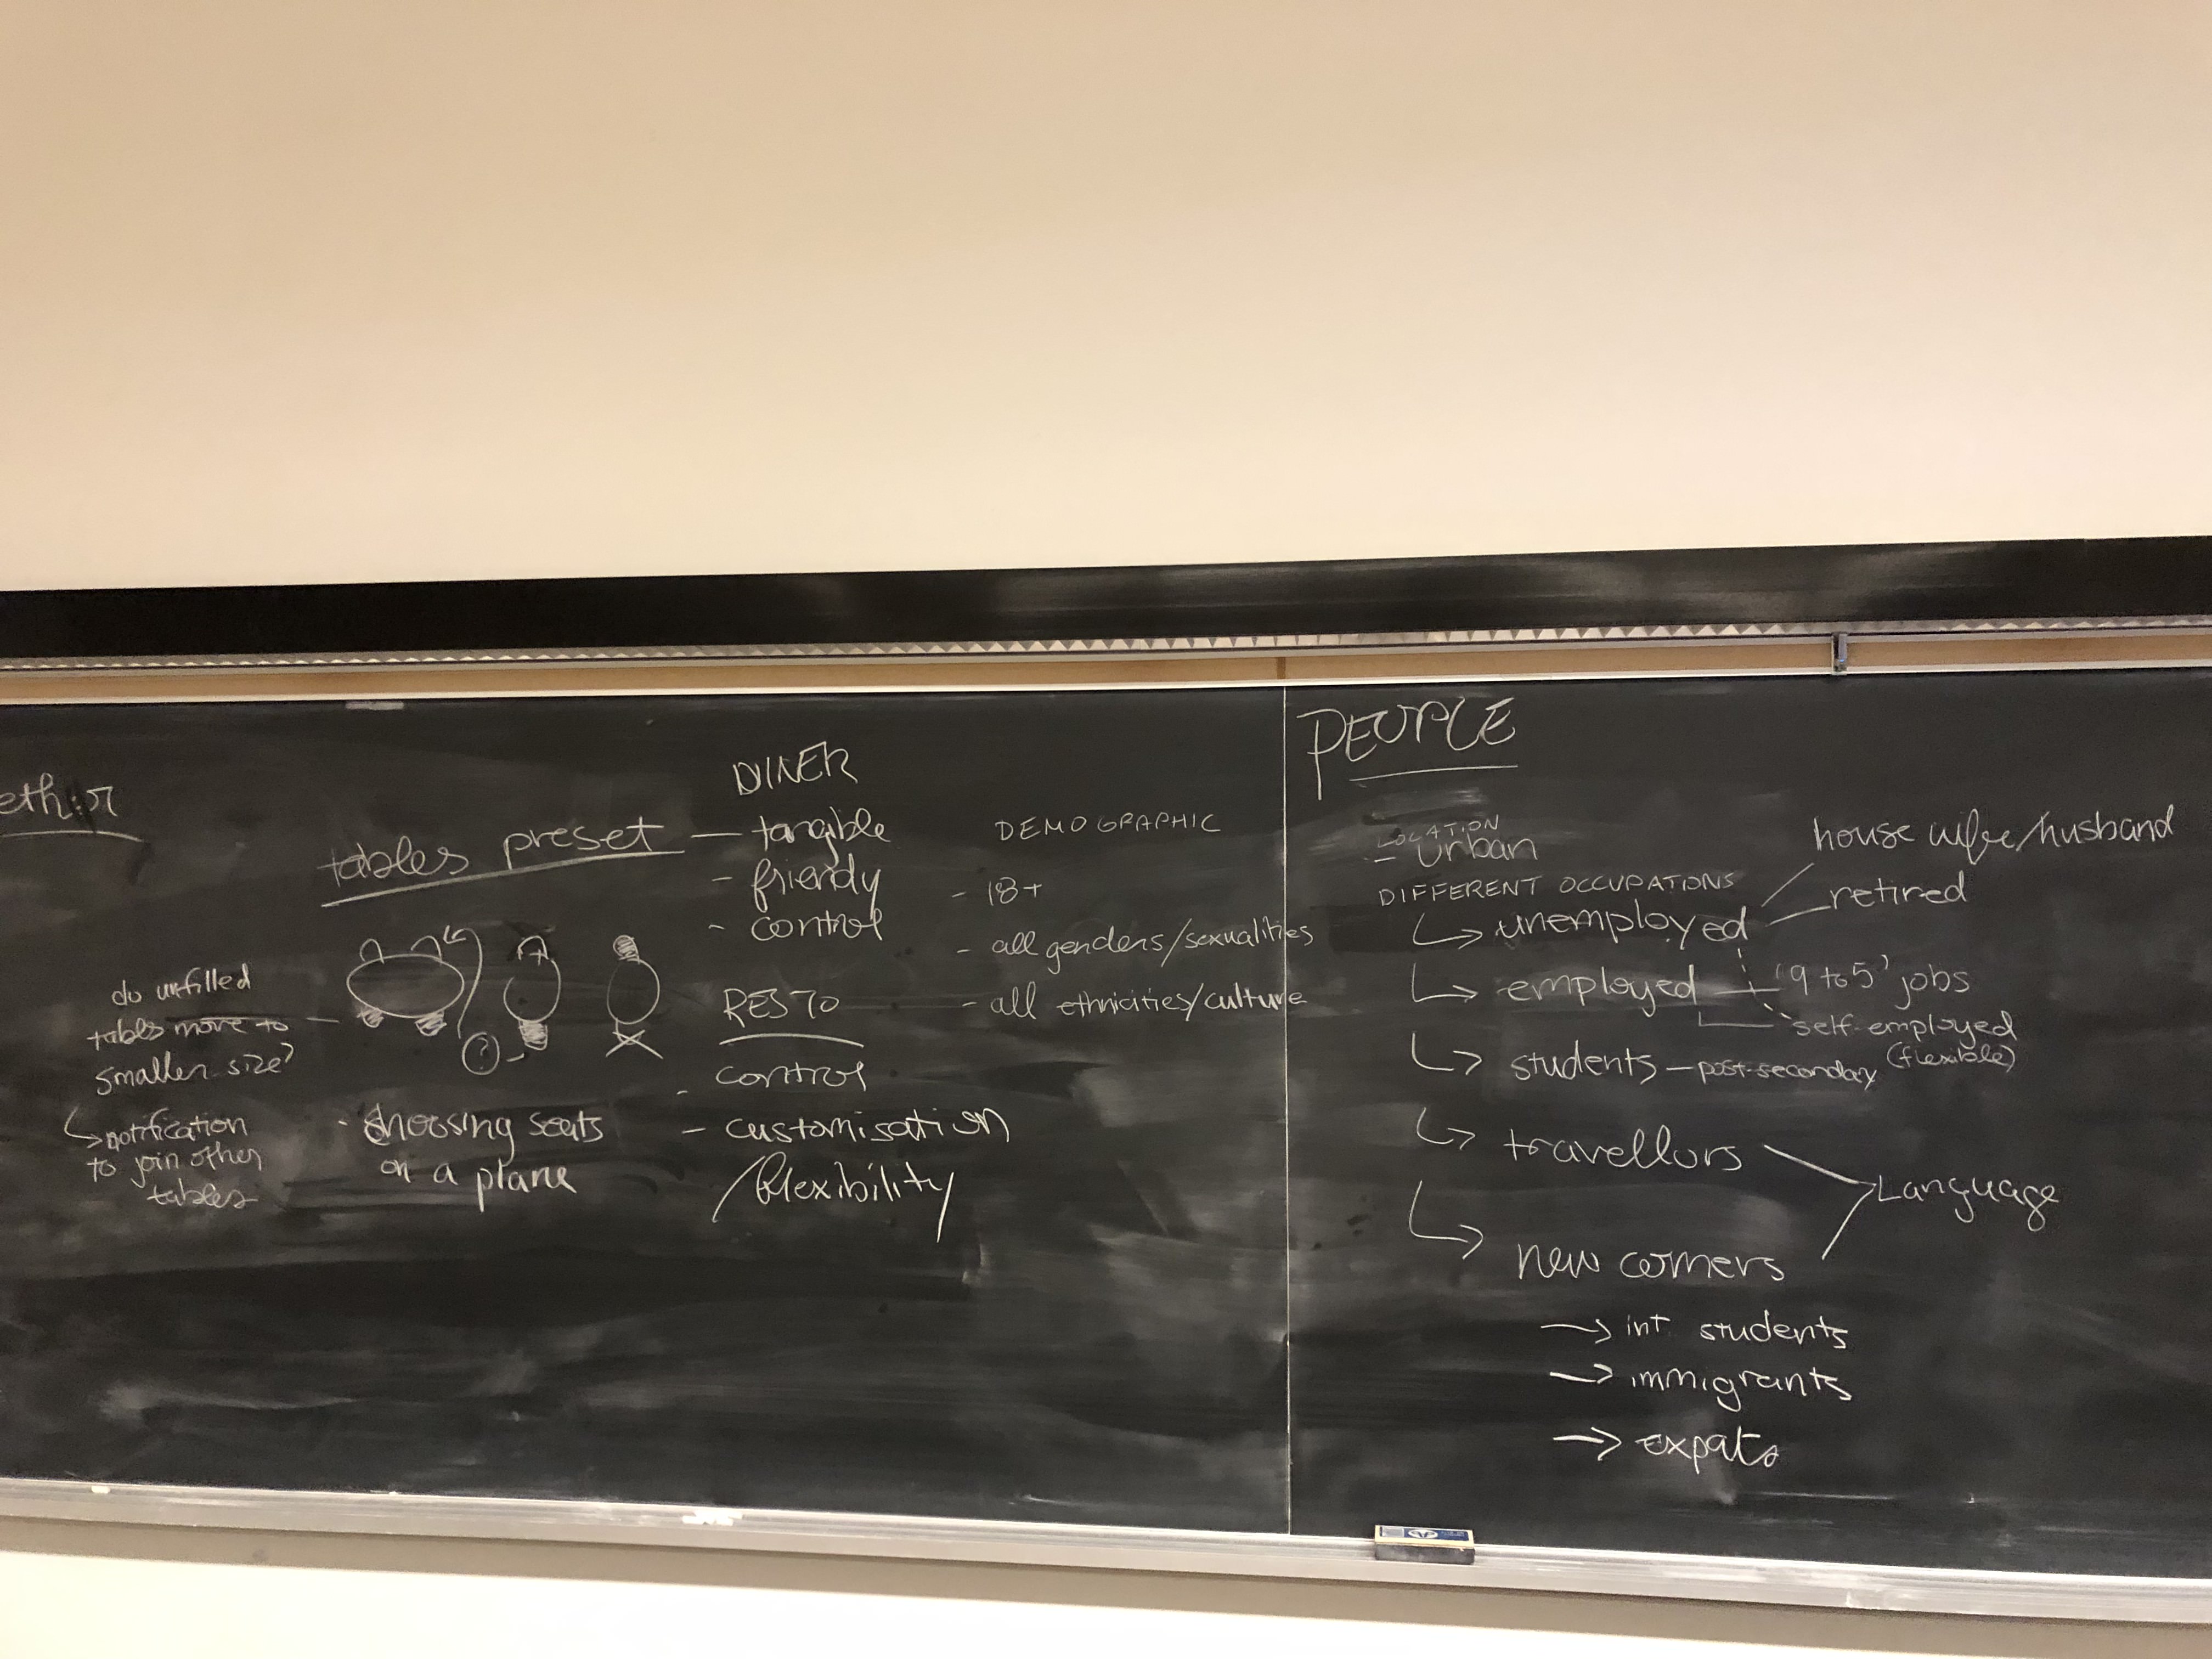 tables preset
do unfilled
tables move to
smaller size?
notification
to join other
tables
?
- choosing seats
on a plane
DINER
- tangible
- friendly
- control
RESTO
- control
- customisation
/flexibility
DEMOGRAPHIC
- 18+
- all genders/sexualities
- all ethnicities/culture
PEOPLE
LOCATION
- urban
DIFFERENT OCCUPATIONS
unemployed
house wife/husband
retired
employed
'9 to 5' jobs
self-employed
(flexible)
students - post-secondary
travellors
Language
new comers
int students
immigrants
expats